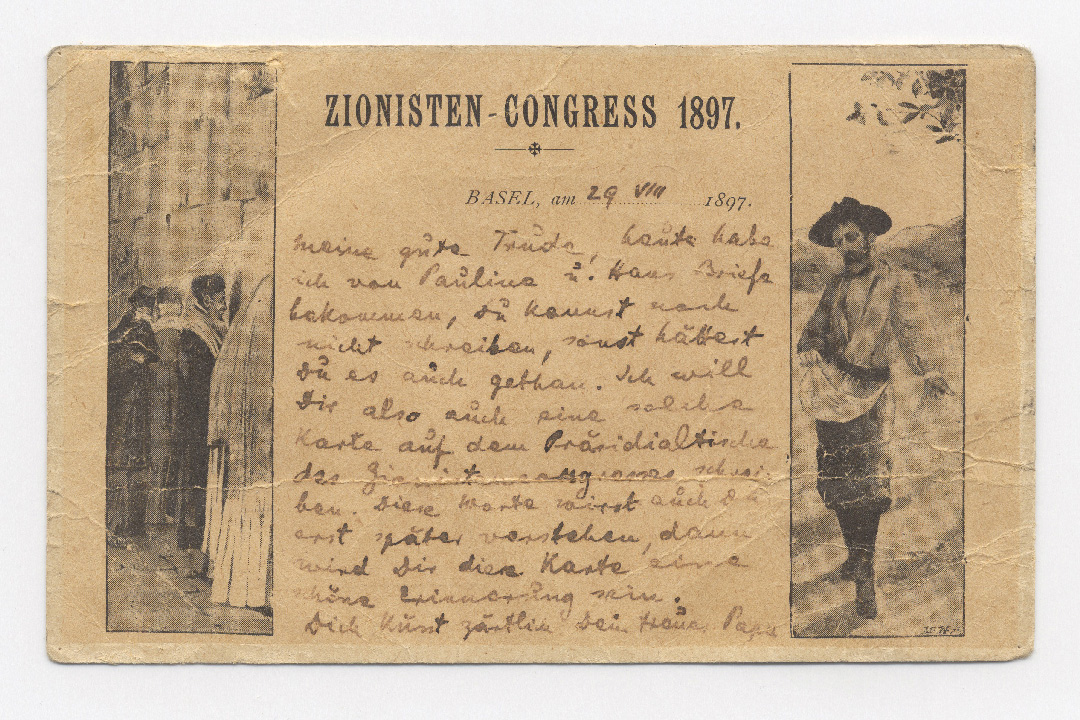 ZIONISTEN-CONGRESS 1897.
BASEL, am 29 VIII 1897.
Meine gute Trude, heute habe
ich von Pauline u. Hans Briefe
bekommen, Du kannst noch
nicht schreiben, sonst hättest
Du es auch gethan. Ich will
Dir also auch eine solche
Karte auf dem Präsidialtische
des Zionistencongresses schrei-
ben. Diese Worte wirst auch Du
erst später verstehen, dann
wird Dir diese Karte eine
schöne Erinnerung sein.
Dich küsst zärtlich Dein treuer Papa